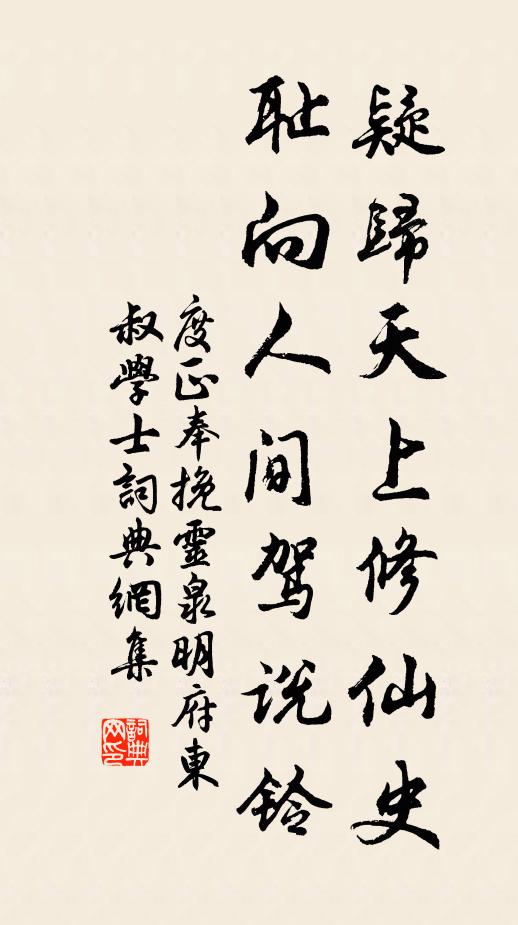 疑歸天上修仙史
耻向人间駕说鈴
度正奉挽靈泉明府東
叔學士詞典網集
詞典网印